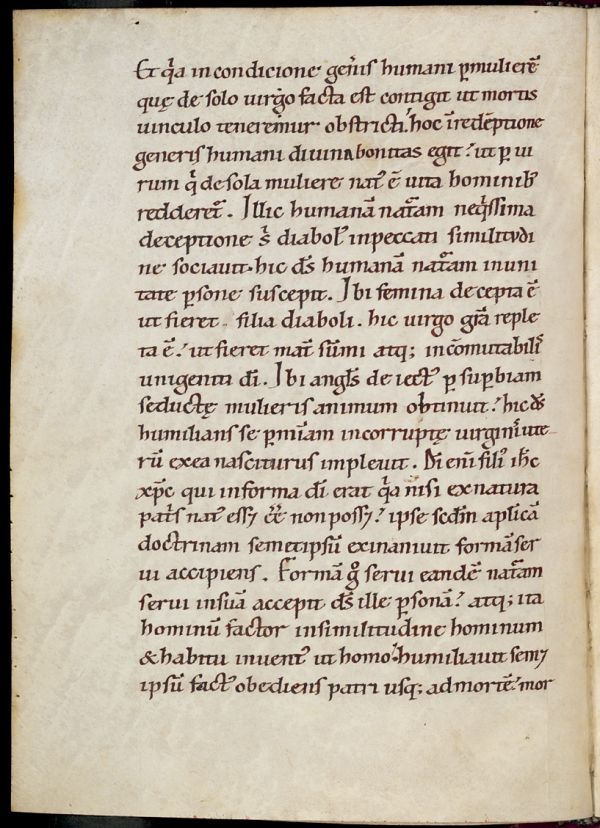 Et qͥa in condicione gen̅is humani p̲ muliere̅
quę de solo virg̊o facta est contigit ut mortis
uinculo teneremur obstricti. hoc i̅ rede̅ptione
generis humani diuina bonitas egit. ut p̲ ui
rum qͥ de sola muliere nat᷒ e̅ uita hominib;
redderet᷑. Illic humana̅ nat᷑am neqͥssima
deceptione s̅ diabol᷒ in peccati similitudi
ne sociauit. hic d̅s humana̅ nat᷑am in uni
tate p̲sone suscepit. Ibi femina decepta e̅
ut fieret filia diaboli. hic virgo gr̅a reple
ta e̅. ut fieret mat̅ su̅mi atq; inco̅mutabilis
unigeniti di̅. Ibi angl̅s deiect᷒ p̲ sup̲biam
seductę mulieris animum obtinuit. hic d̅s
humilians se p̲ mi̅am incorruptę virginis ute
ru̅ ex ea nasciturus impleuit. Di̅ eni̅ fili᷒ ih̅c
xp̅c qui in forma di̅ erat qͥa nisi ex natura
pat̅s nat᷒ esse ee̅ non posset. ipse sed̅m ap̅lica̅
doctrinam semetipsu̅ exinaniuit forma̅ ser
ui accipiens. Forma̅ gͦ serui eande̅ nat᷑am
serui in sua̅ accepit d̅s ille p̲sona̅. atq; ita
hominu̅ factor in similitudine hominum
& habitu inuent᷒ ut homo. humiliauit sem&
ipsu̅ fact᷒ obediens patri usq; ad morte̅. mor